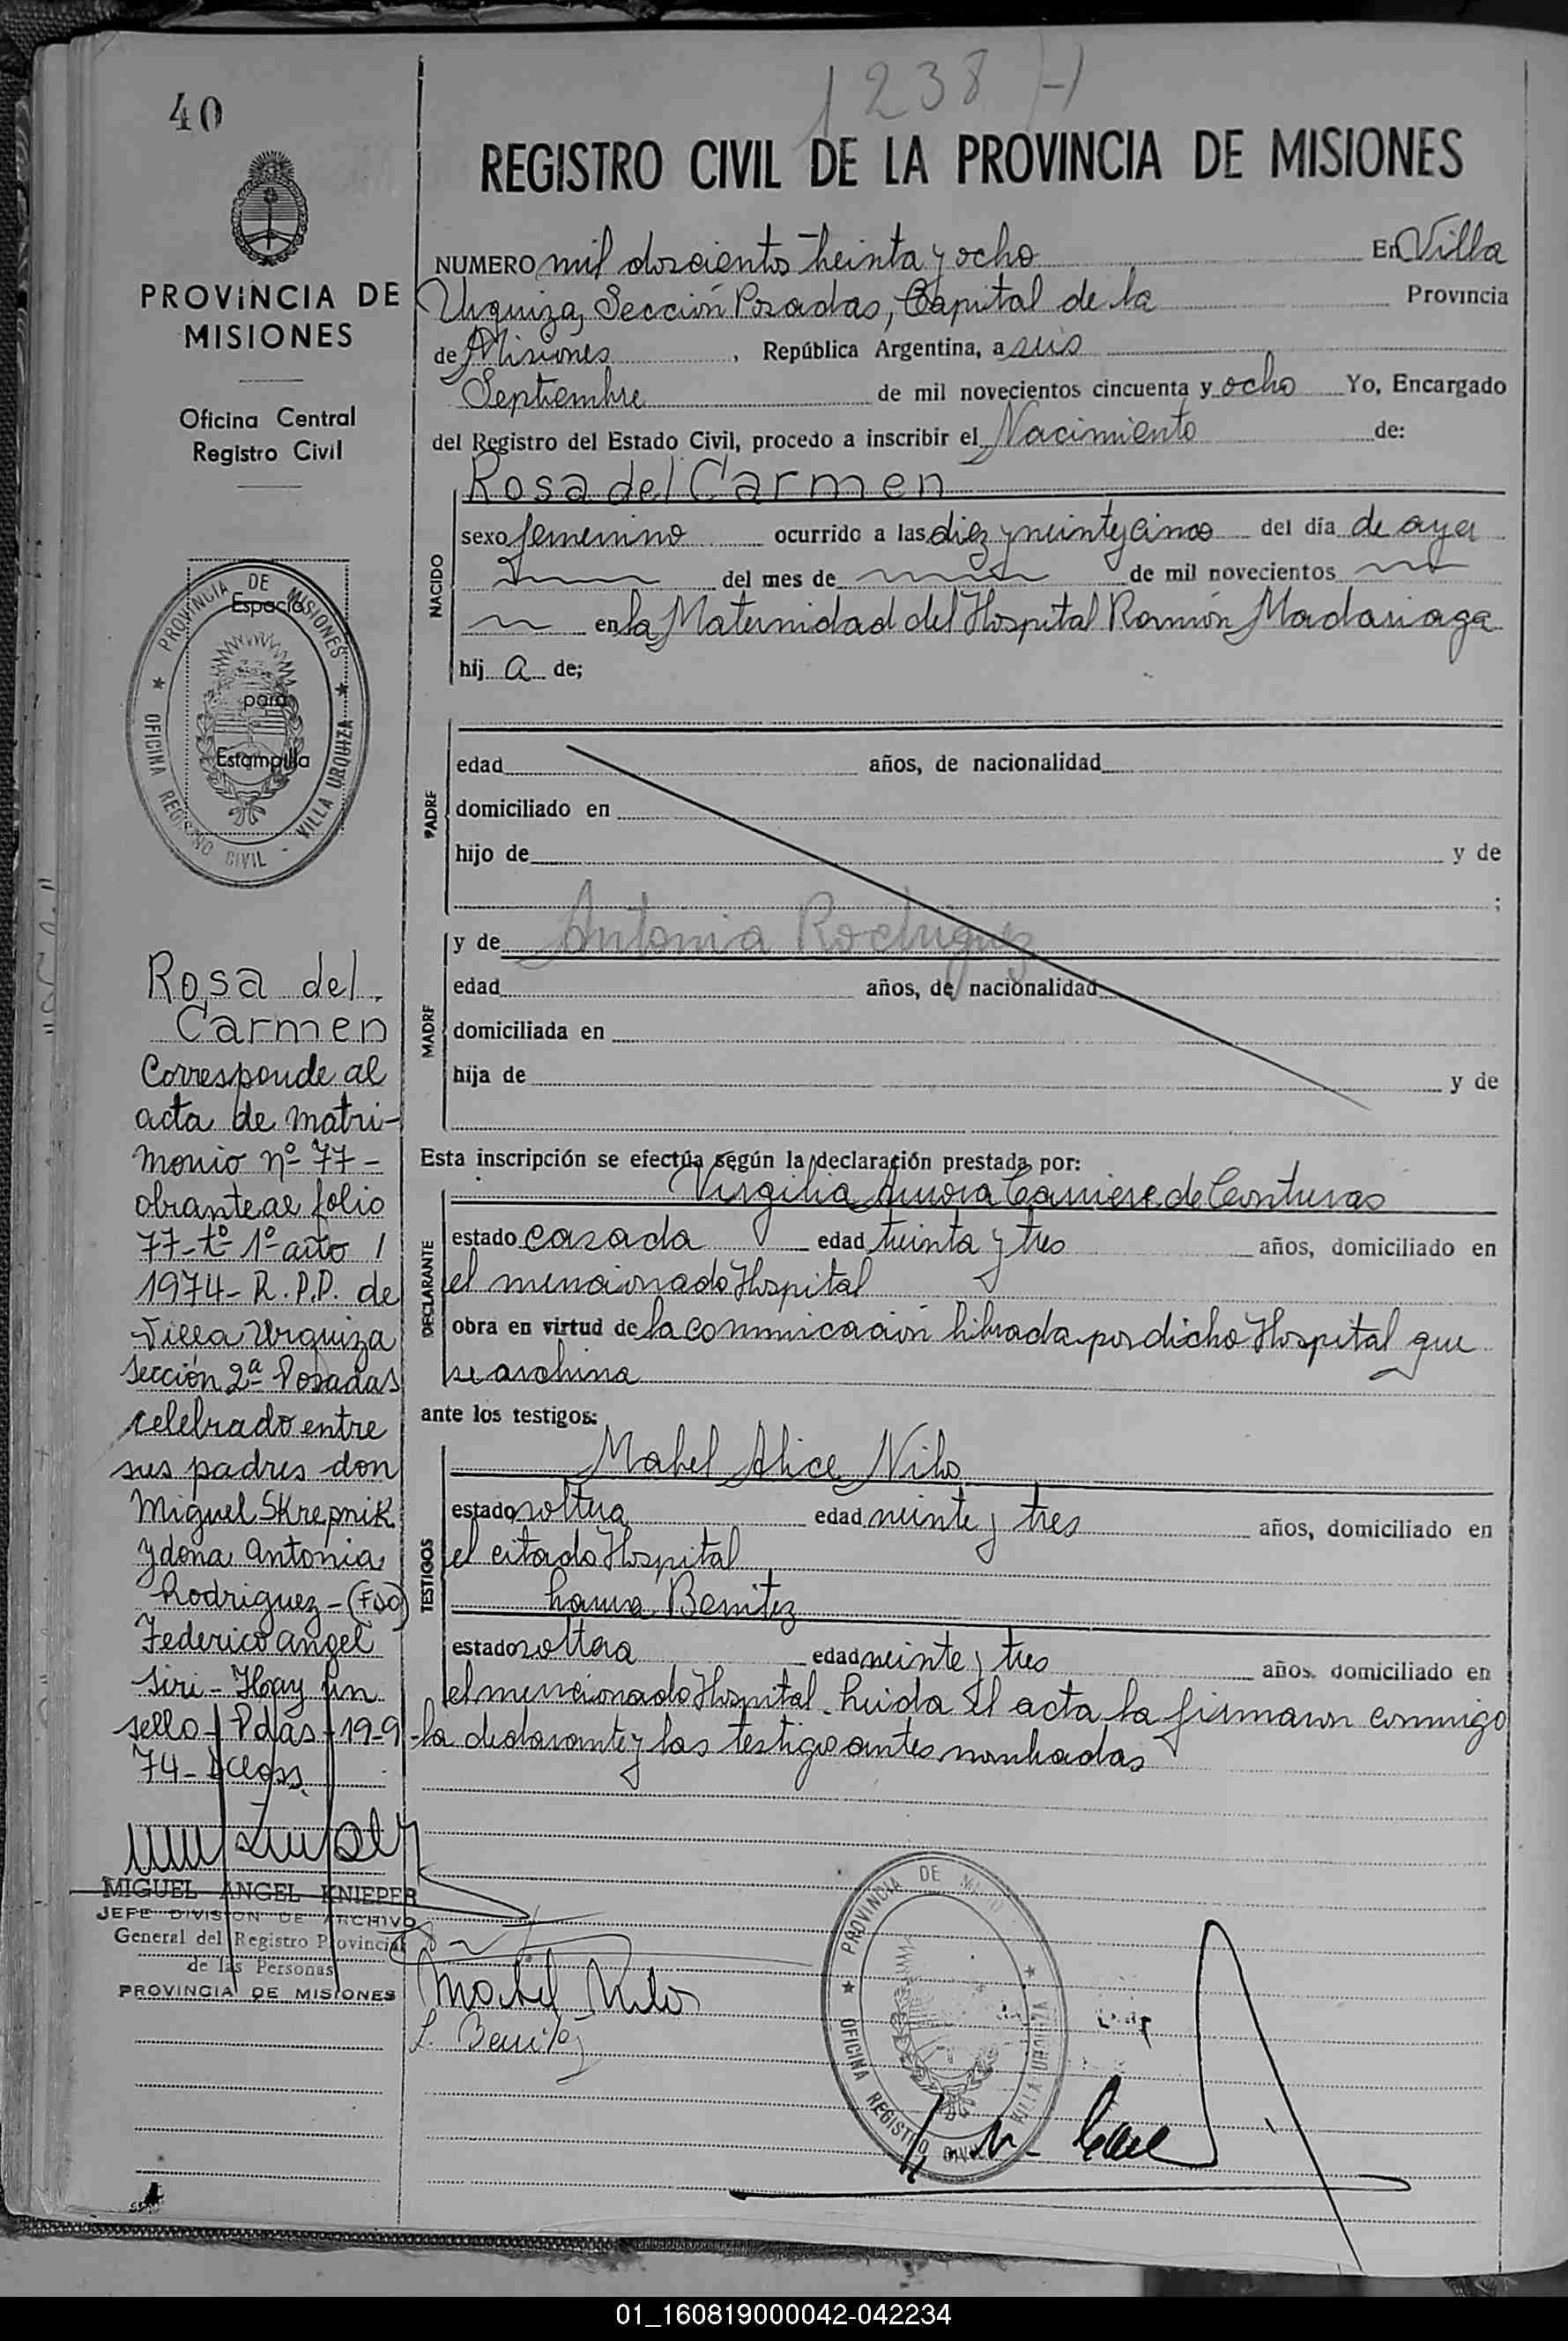 40
PROVINCIA DE
MISIONES
Oficina Central
Registro Civil
PROVINCIA DE MISIONES
OFICINA REGISTRO CIVIL - VILLA URQUIZA
Espacio
para
Estampilla
Rosa del
Carmen
Corresponde al
acta de matri-
monio nº 77-
obrante al folio
77-tº 1º año
1974- R.P.P. de
Villa Urquiza
Sección 2ª Posadas
celebrado entre
sus padres don
Miguel Skrepnik
y doña Antonia
Rodriguez-(Fdo)
Federico Angel
Siri- Hay un
sello- Pdas- 19-9-
74-
MIGUEL ANGEL KNIEPER
JEFE DIVISION DE ARCHIVO
General del Registro Provincial
de las Personas
PROVINCIA DE MISIONES
1238 H
REGISTRO CIVIL DE LA PROVINCIA DE MISIONES
NUMERO mil doscientos treinta y ocho En Villa
Urquiza, Sección Posadas, Capital de la Provincia
de Misiones, República Argentina, a seis
Septiembre de mil novecientos cincuenta y ocho Yo, Encargado
del Registro del Estado Civil, procedo a inscribir el Nacimiento de:
Rosa del Carmen
NACIDO
sexo femenino ocurrido a las diez y veinteycinco del día de ayer
del mes de de mil novecientos
en la Maternidad del Hospital Ramón Madariaga
hij a de;
PADRE
edad años, de nacionalidad
domiciliado en
hijo de y de
;
MADRE
y de Antonia Rodriguez
edad años, de nacionalidad
domiciliada en
hija de y de
Esta inscripción se efectúa según la declaración prestada por:
DECLARANTE
Virgilia Aurora de Contreras
estado casada edad treinta y tres años, domiciliado en
el mencionado Hospital
obra en virtud de la comunicación librada por dicho Hospital que
se archiva
ante los testigos:
TESTIGOS
Mabel Alice Nilo
estado soltera edad veinte y tres años, domiciliado en
el citado Hospital
Laura Benitez
estado soltera edad veinte y tres años, domiciliado en
el mencionado Hospital. Leida el acta la firmaron conmigo
la declarante y las testigo antes nombradas
Mabel Nilo
L. Benitez
PROVINCIA DE MISIONES
OFICINA REGISTRO CIVIL VILLA URQUIZA
01_160819000042-042234